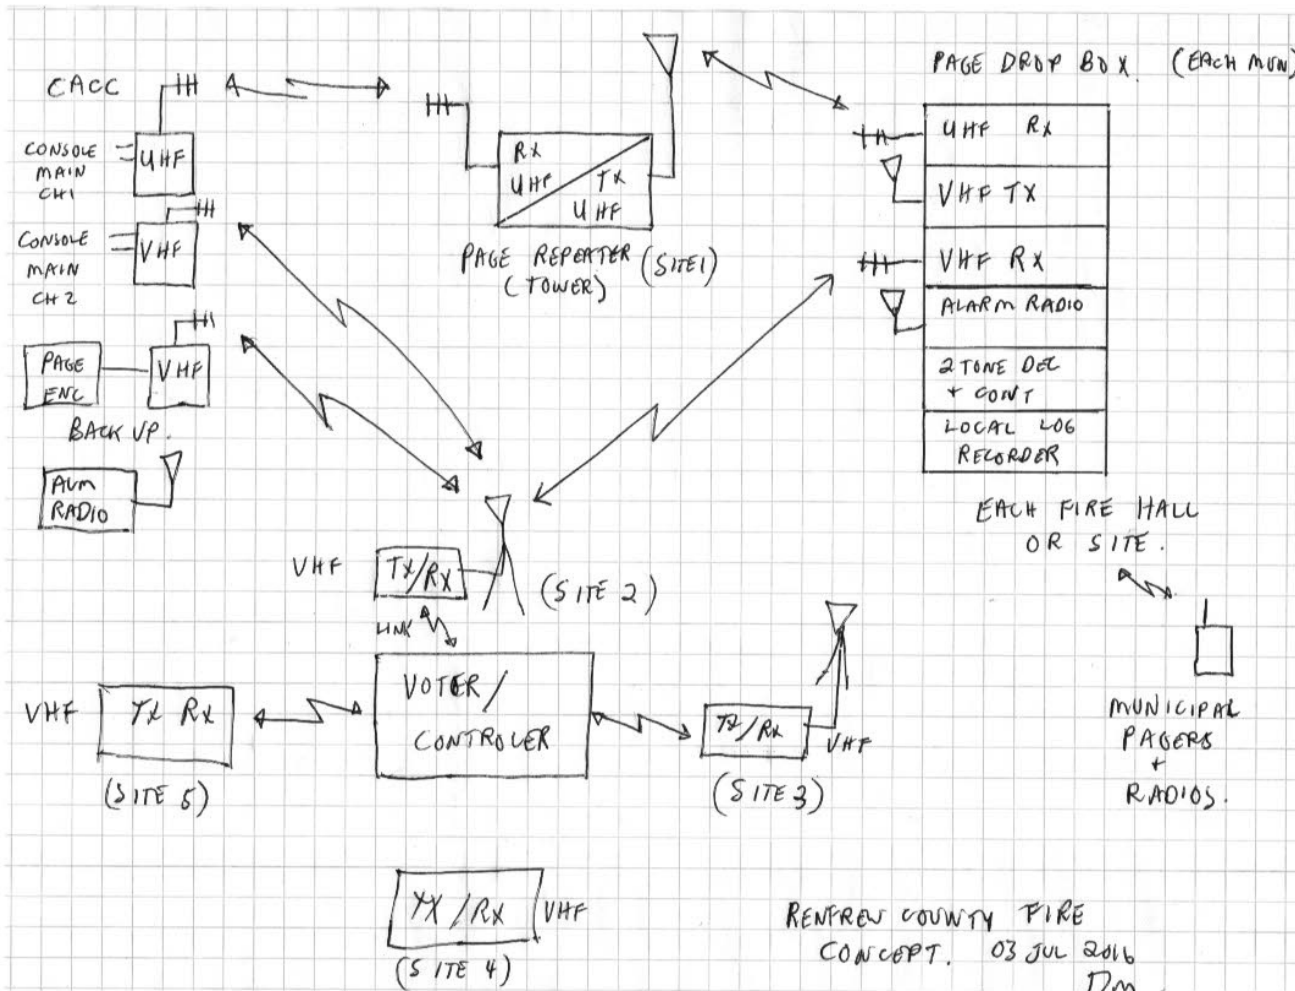 CACC
CONSOLE
MAIN
CH1
UHF
CONSOLE
MAIN
CH 2
VHF
PAGE
ENC
VHF
BACK UP.
ALM
RADIO
RX
UHF
TX
UHF
PAGE REPEATER (SITE1)
(TOWER)
PAGE DROP BOX. (EACH MUN)
UHF RX
VHF TX
VHF RX
ALARM RADIO
2 TONE DEC
+ CONT
LOCAL LOG
RECORDER
EACH FIRE HALL
OR SITE.
MUNICIPAL
PAGERS
+
RADIOS.
VHF
TX/RX
(SITE 2)
LINK
VOTER/
CONTROLER
VHF
TX RX
(SITE 5)
TX/RX
VHF
(SITE 3)
TX/RX VHF
(SITE 4)
RENFREW COUNTY FIRE
CONCEPT. 03 JUL 2016